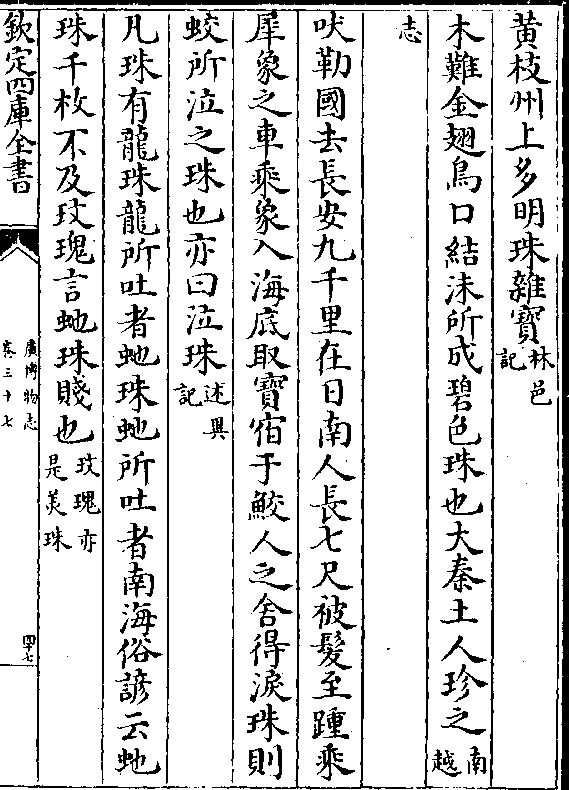 黄枝州上多明珠雜寳林邑記
木難金翅鳥口結沫所成碧色珠也大秦土人珍之南越
志
吠勒國去長安九千里在日南人長七尺被髪至踵乘
犀象之車乘象入海底取寳宿于鮫人之舍得淚珠則
蛟所泣之珠也亦曰泣珠述異記
凡珠有龍珠龍所吐者虵珠虵所吐者南海俗諺云虵
珠千枚不及玫瑰言虵珠賤也玫瑰亦是美珠
欽定四庫全書
廣博物志
卷三十七
四十七